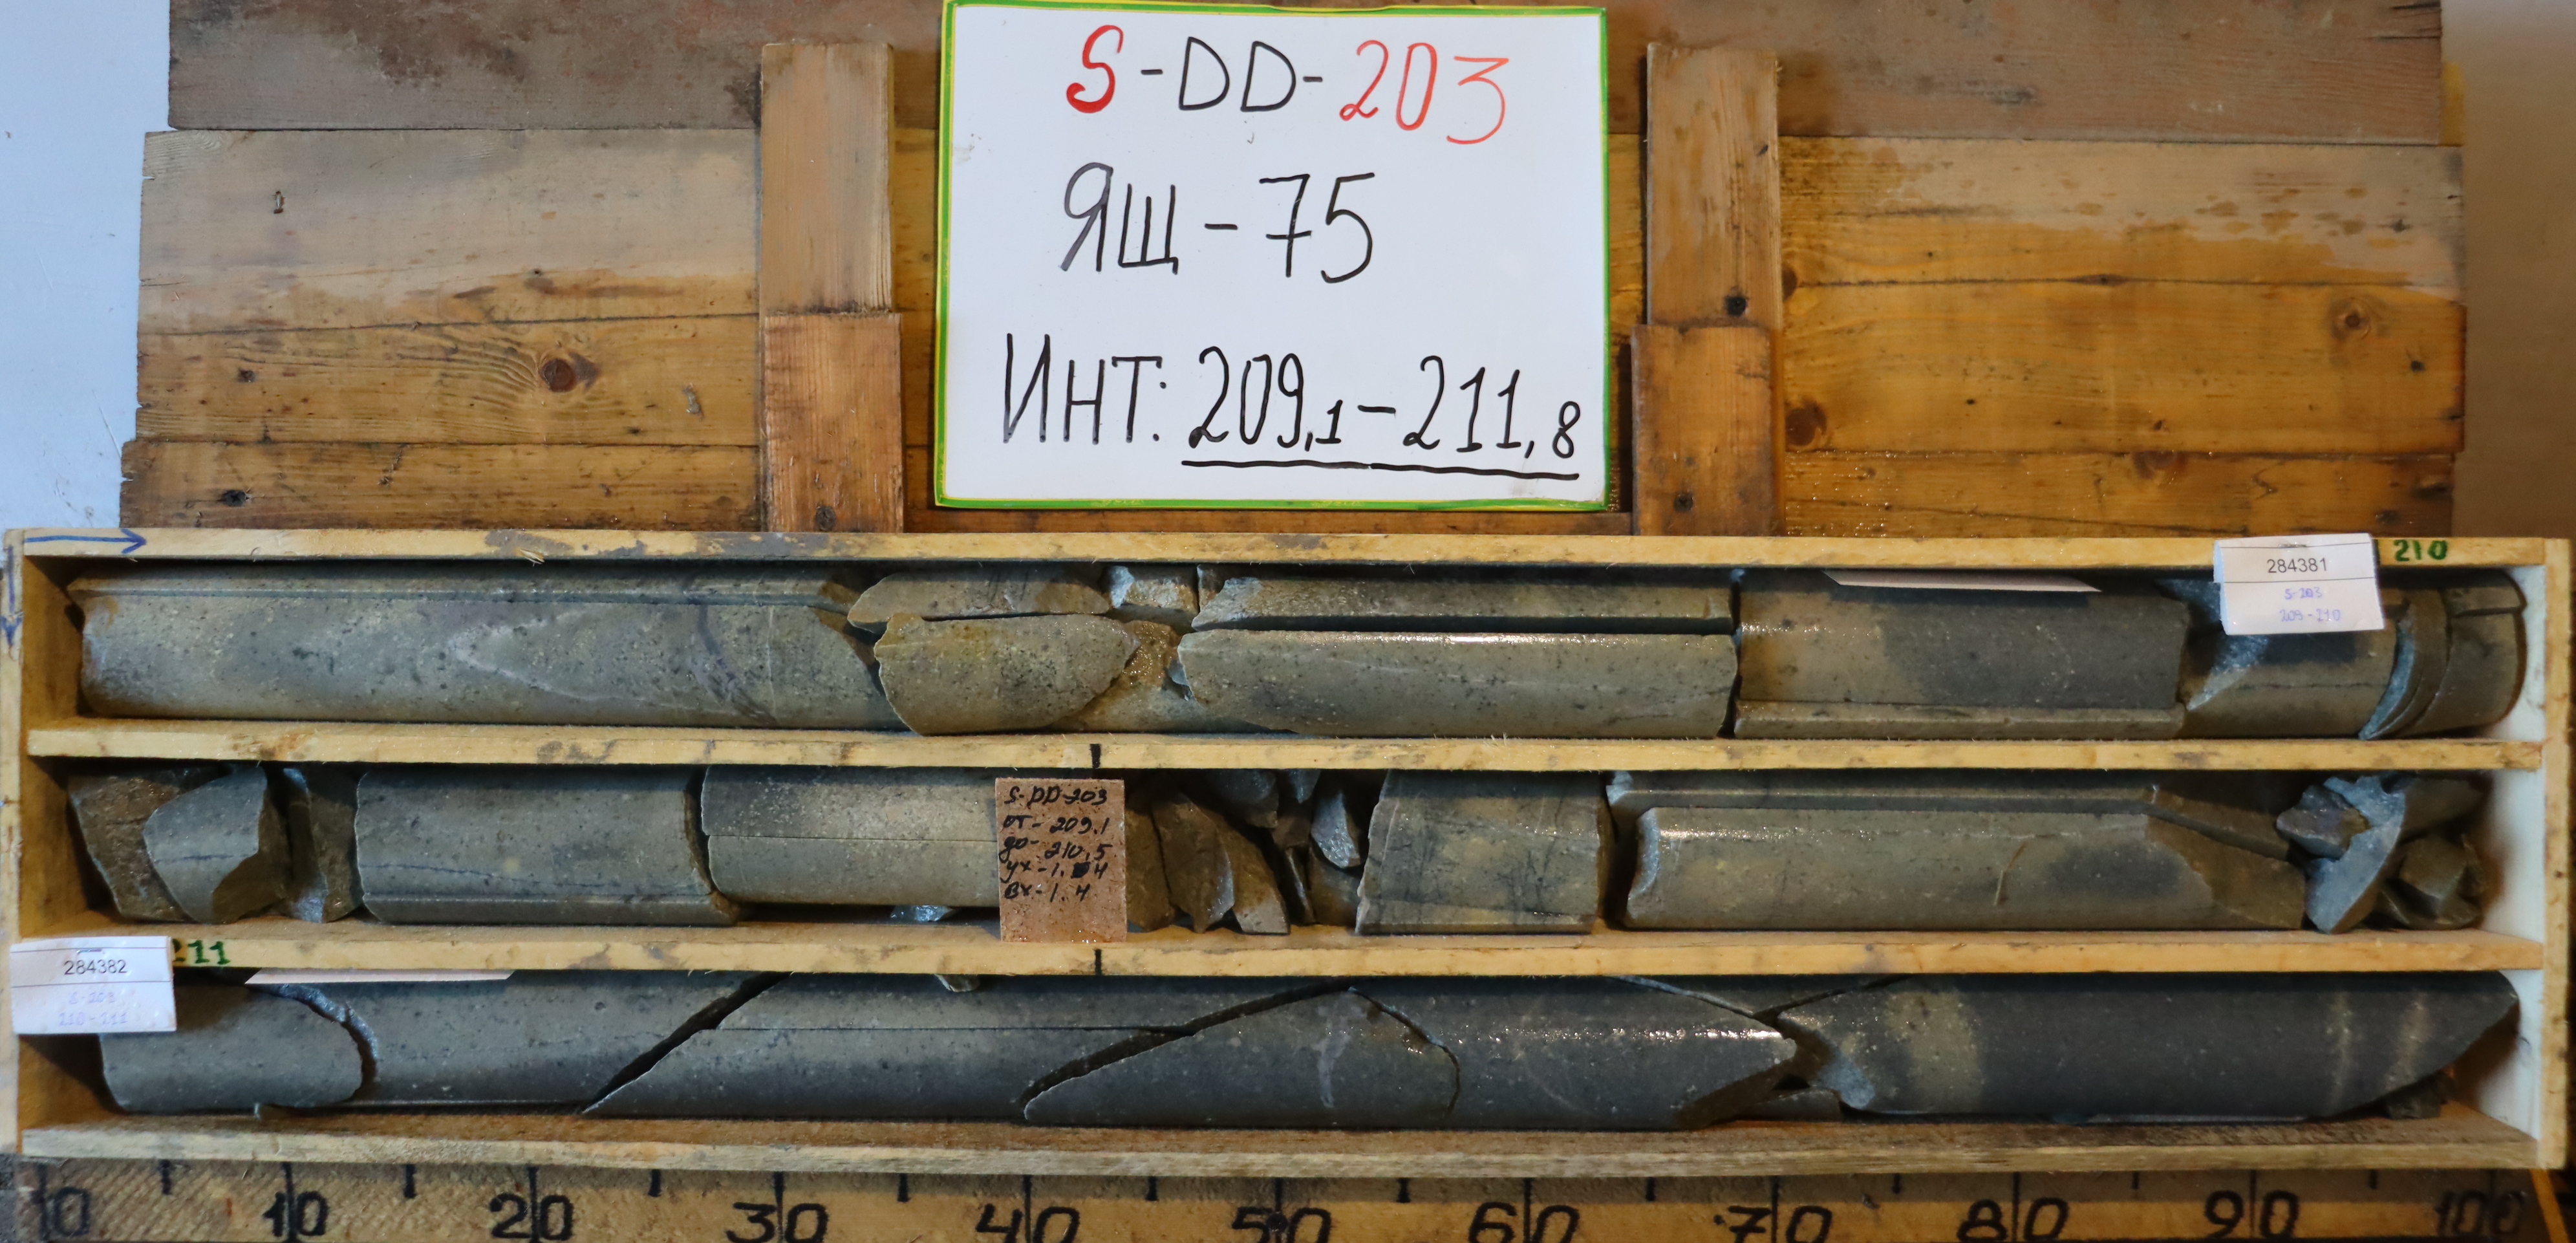 S-DD-203
ЯЩ-75
ИНТ: 209,1-211,8
210
284381
S-203
209-210
S-DD-203
от-209.1
до-210,5
ух-1.4
вх-1.4
211
284382
S-203
210-211
0 10 20 30 40 50 60 70 80 90 100